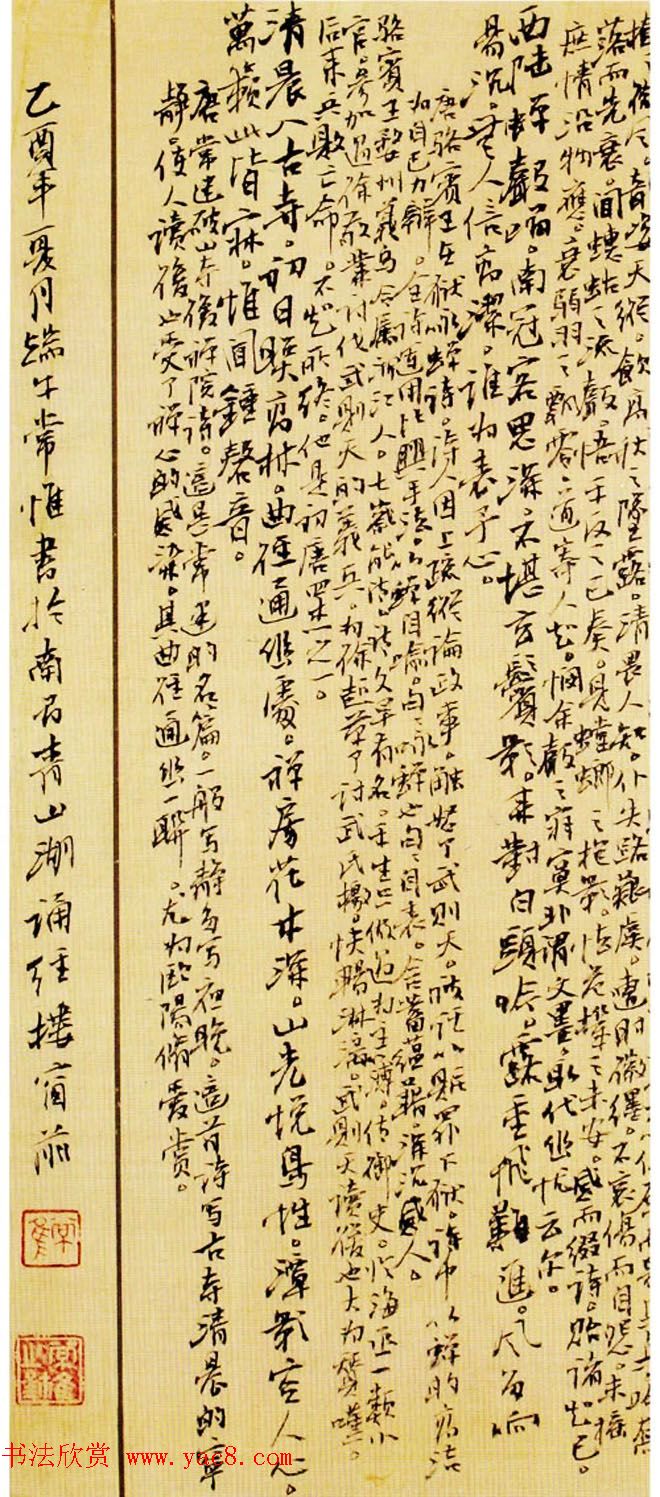 天縱。飲高秋之墜露。清畏人知。仆失路艱虞。遭時徽纆。不哀傷而自怨。未搖
落而先衰。聞蟪蛄之流聲。悟平反之已奏。見螳螂之抱影。怯危機之未安。感而綴詩。貽諸知己。
庶情沿物應。哀弱羽之飄零。道寄人知。憫余聲之寂寞。非謂文墨。取代幽憂云尔。
西陸蟬聲唱。南冠客思深。不堪玄鬢影。來對白頭吟。露重飛難進。風多响
易沉。無人信高潔。誰为表予心。
唐駱賓王在獄詠蟬詩。詩人因上疏縱論政事。觸怒了武則天。被誣以贓罪下獄。詩中以蟬的高洁
为自己力辯。全詩運用比興手法。以蟬自喻。句句詠蟬也句句自表。含蓄蘊藉。深沉感人。
駱賓王婺州義烏今屬浙江人。七歲能詩。詩文早有名。平生只做過主簿。侍御史。臨海丞一類小
官。参加過徐敬業討伐武則天的義兵。为徐起草了討武氏檄。快暢淋漓。武則天讀後也大为贊嘆。
后來兵敗亡命。不知所終。他是初唐四杰之一。
清晨入古寺。初日照高林。曲徑通幽處。禪房花木深。山光悅鳥性。潭影空人心。
萬籟此皆寂。惟聞鍾磬音。
唐常建破山寺後禪院詩。這是常建的名篇。一般寫静多寫夜晚。這首詩寫古寺清晨的寧
静。使人讀後也受了禪心的感染。其曲徑通幽一聯。尤为歐陽脩愛賞。
乙酉年夏月端午常惟書於南昌青山湖誦經樓窗前
书法欣赏 www.yac8.com